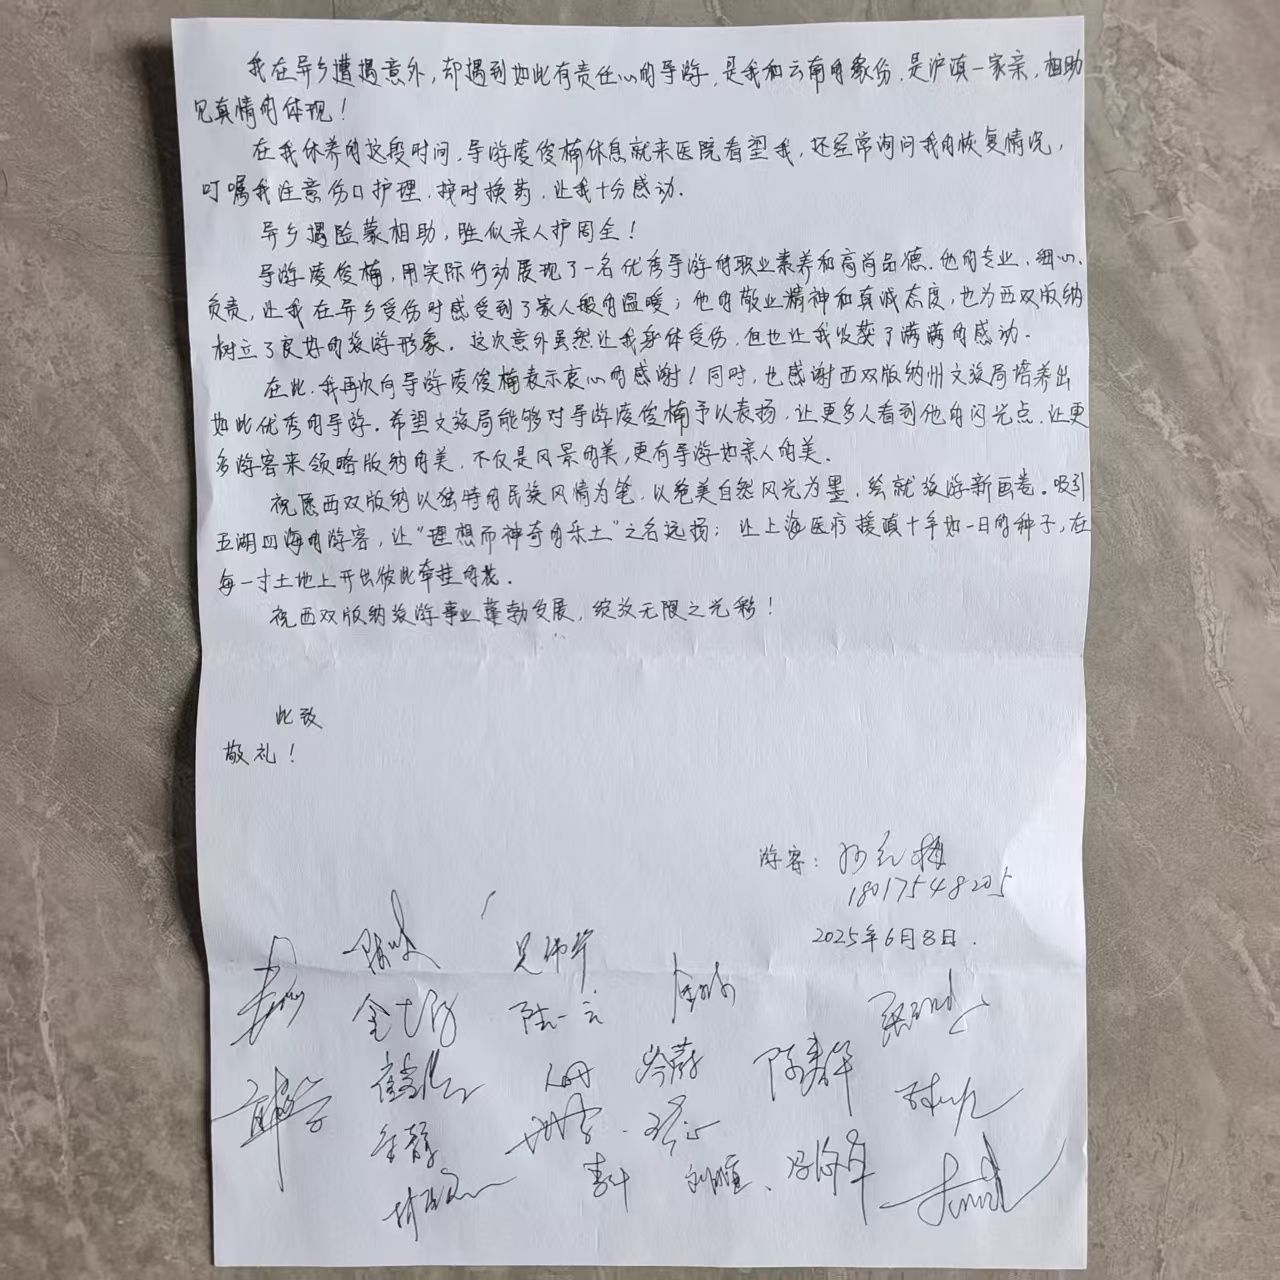 我在异乡遭遇意外，却遇到如此有责任心的导游，是我和云南的缘份，是沪滇一家亲，相助
见真情的体现！
在我休养的这段时间，导游凌俊楠休息就来医院看望我，还经常询问我的恢复情况，
叮嘱我注意伤口护理，按时换药，让我十分感动．
异乡遇险蒙相助，胜似亲人护周全！
导游凌俊楠，用实际行动展现了一名优秀导游的职业素养和高尚品德．他的专业、细心、
负责，让我在异乡受伤时感受到了家人般的温暖；他的敬业精神和真诚态度，也为西双版纳
树立了良好的旅游形象．这次意外虽然让我身体受伤，但也让我收获了满满的感动．
在此，我再次向导游凌俊楠表示衷心的感谢！同时，也感谢西双版纳州文旅局培养出
如此优秀的导游．希望文旅局能够对导游凌俊楠予以表扬，让更多人看到他的闪光点，让更
多游客来领略版纳的美，不仅是风景的美，更有导游如亲人的美．
祝愿西双版纳以独特的民族风情为笔，以绝美自然风光为墨，绘就旅游新画卷．吸引
五湖四海的游客，让“理想而神奇的乐土”之名远扬；让上海医疗援滇十年如一日的种子，在
每一寸土地上开出彼此牵挂的花．
祝西双版纳旅游事业蓬勃发展，绽放无限之光彩！
此致
敬礼！
游客：
18017548205
2025年6月8日．
陆一云
陈春华